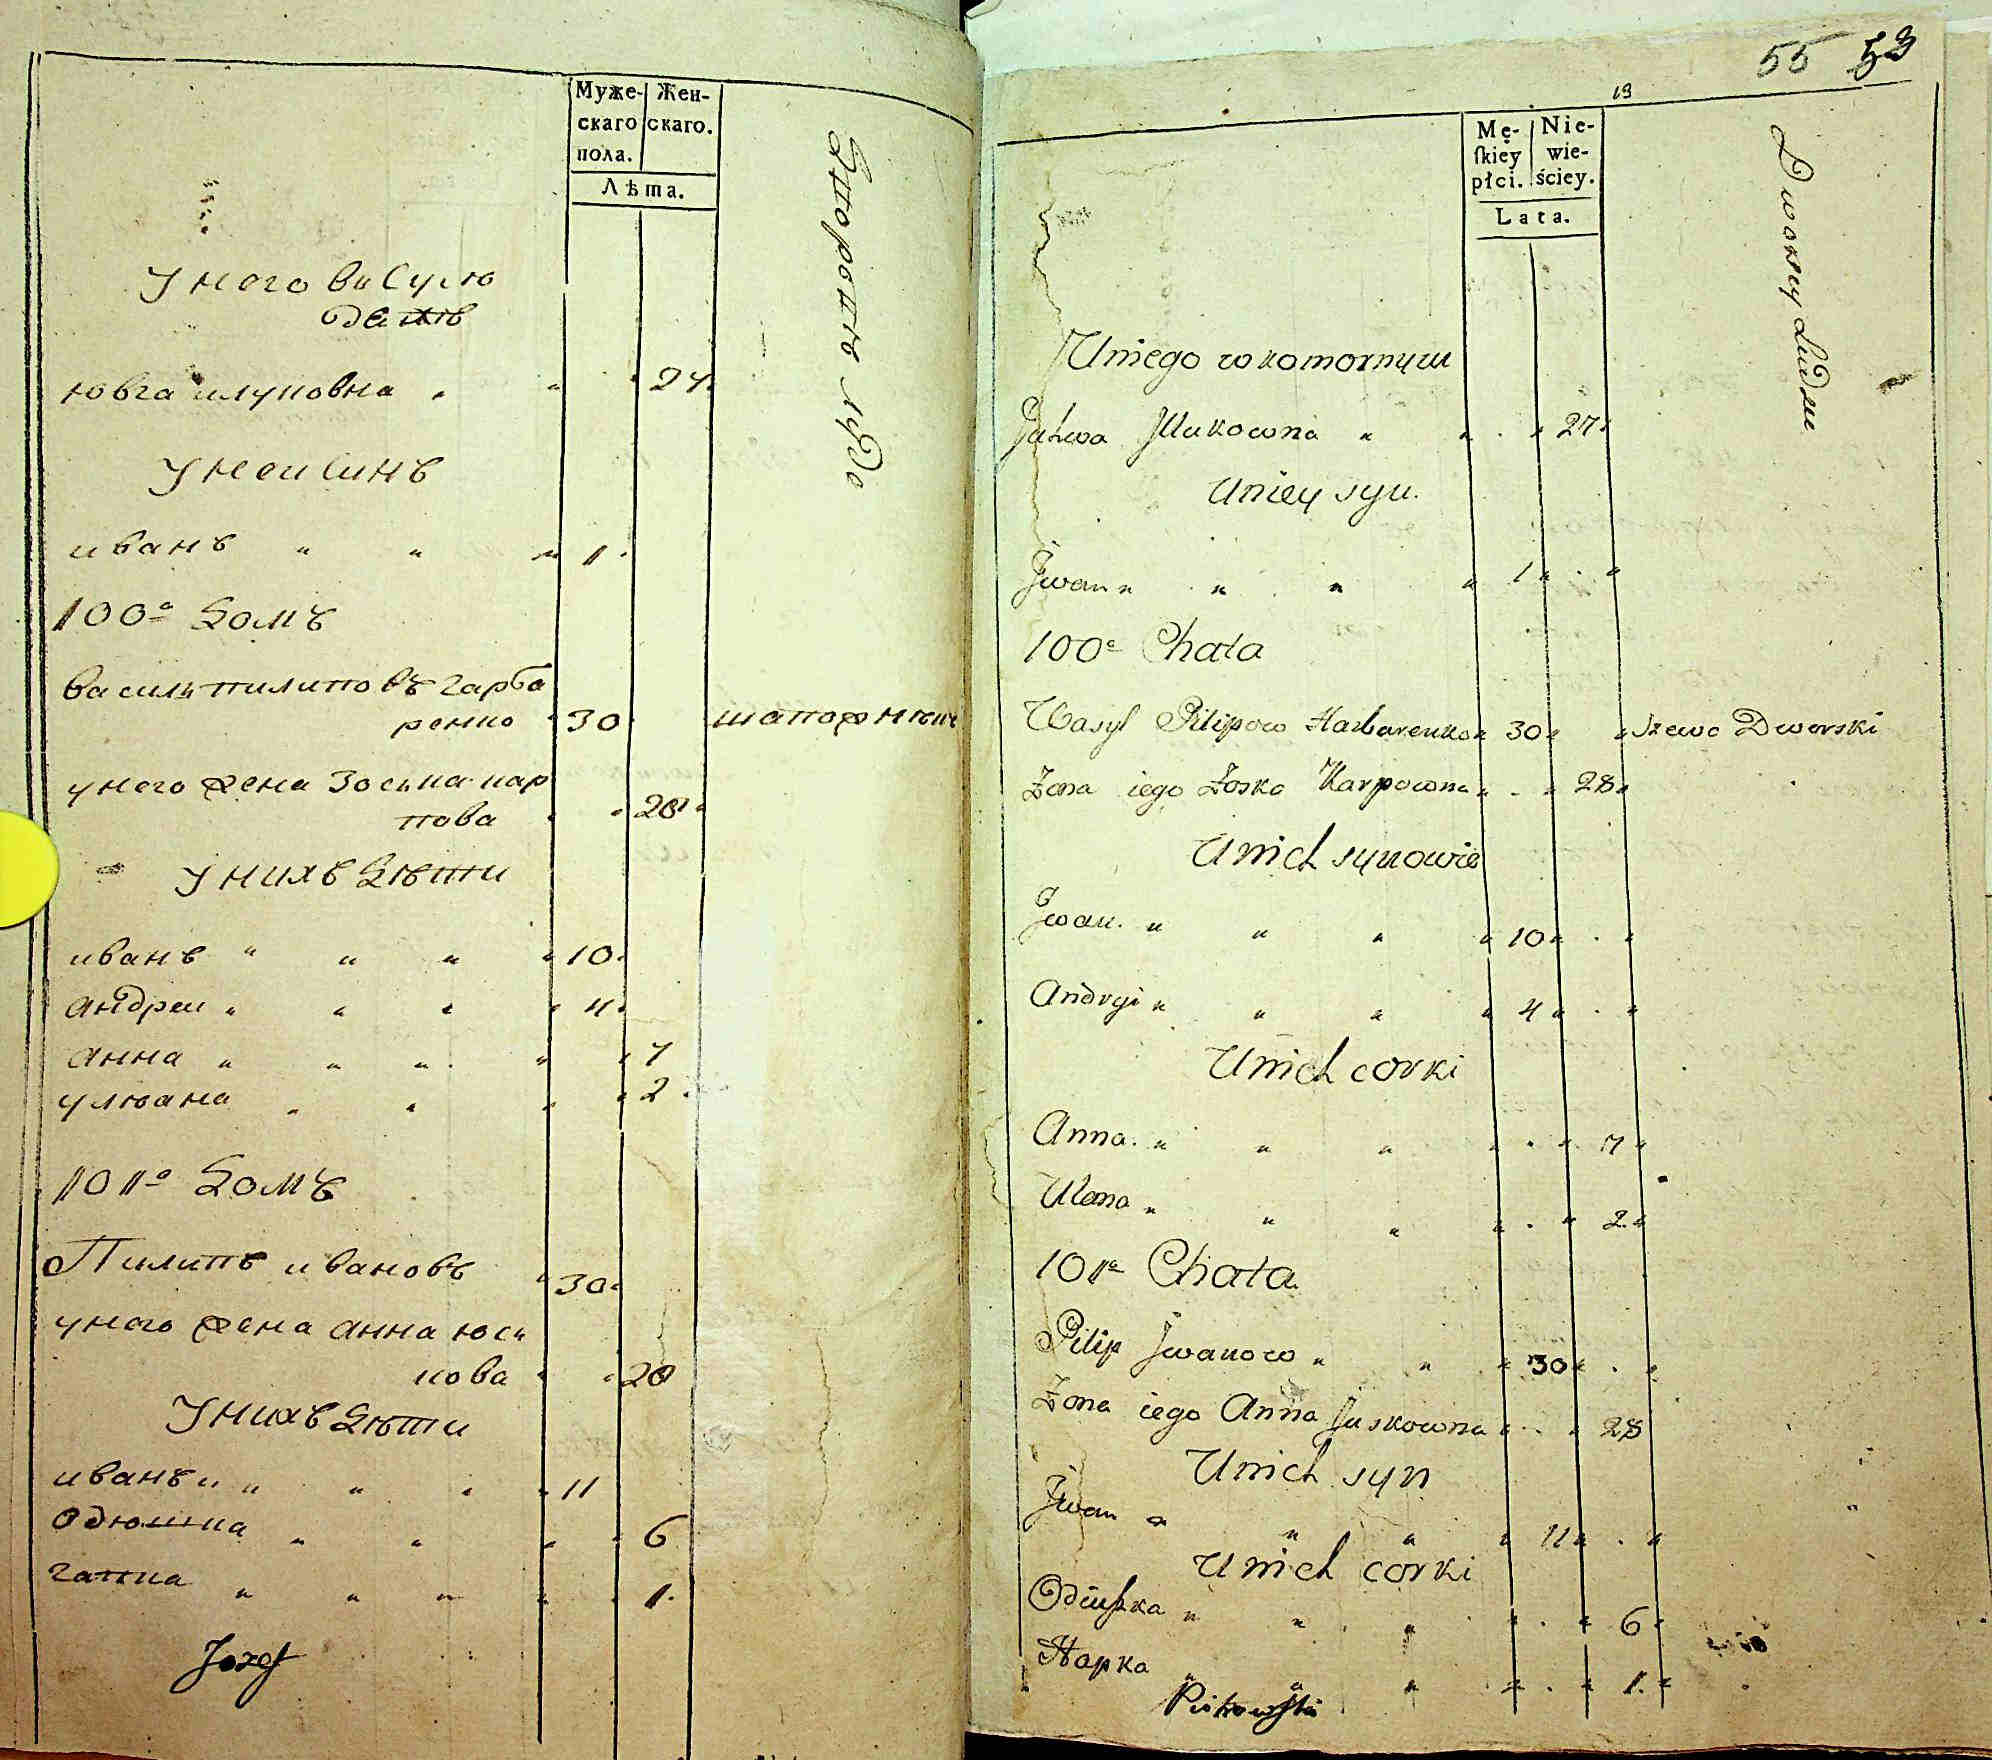 Муже-
скаго
пола.
Жен-
скаго.
Лѣта.
Дворские люде
У него ви Сусю
дах
ювга илуковна 27
У неи Синъ
иванъ 1
100е Домъ
василь пилиповъ гарба
ренко 30
унего жена Зоська кар
пова 28
У нихъ Дѣти
иванъ 10
андреи 4
анна 7
ульяна 2
101е Домъ
Пилипъ ивановъ 30
унего жена анна юсь
кова 28
У нихъ Дѣти
иванъ 11
Одюшка 6
гапка 1
Jozef
55 53
13
Mę-
ſkiey
płci.
Nie-
wie-
ściey.
Lata.
Dworscy Ludzie
U niego w komornym
Juhwa Illukowna 27
U niey syn.
Jwan 1
100e Chata
Wasyl Pilipow Harbarenko 30 Szewc Dworski
Żona iego Zoska Karpowna 28
U nich synowie
Jwan. 10
Andryi 4
U nich corki
Anna. 7
Ulana 2
101e Chata
Pilip Jwanow 30
Żona iego Anna Juskowna 28
U nich syn
Jwan 11
U nich corki
Odiuszka 6
Hapka 1
Piotrowski